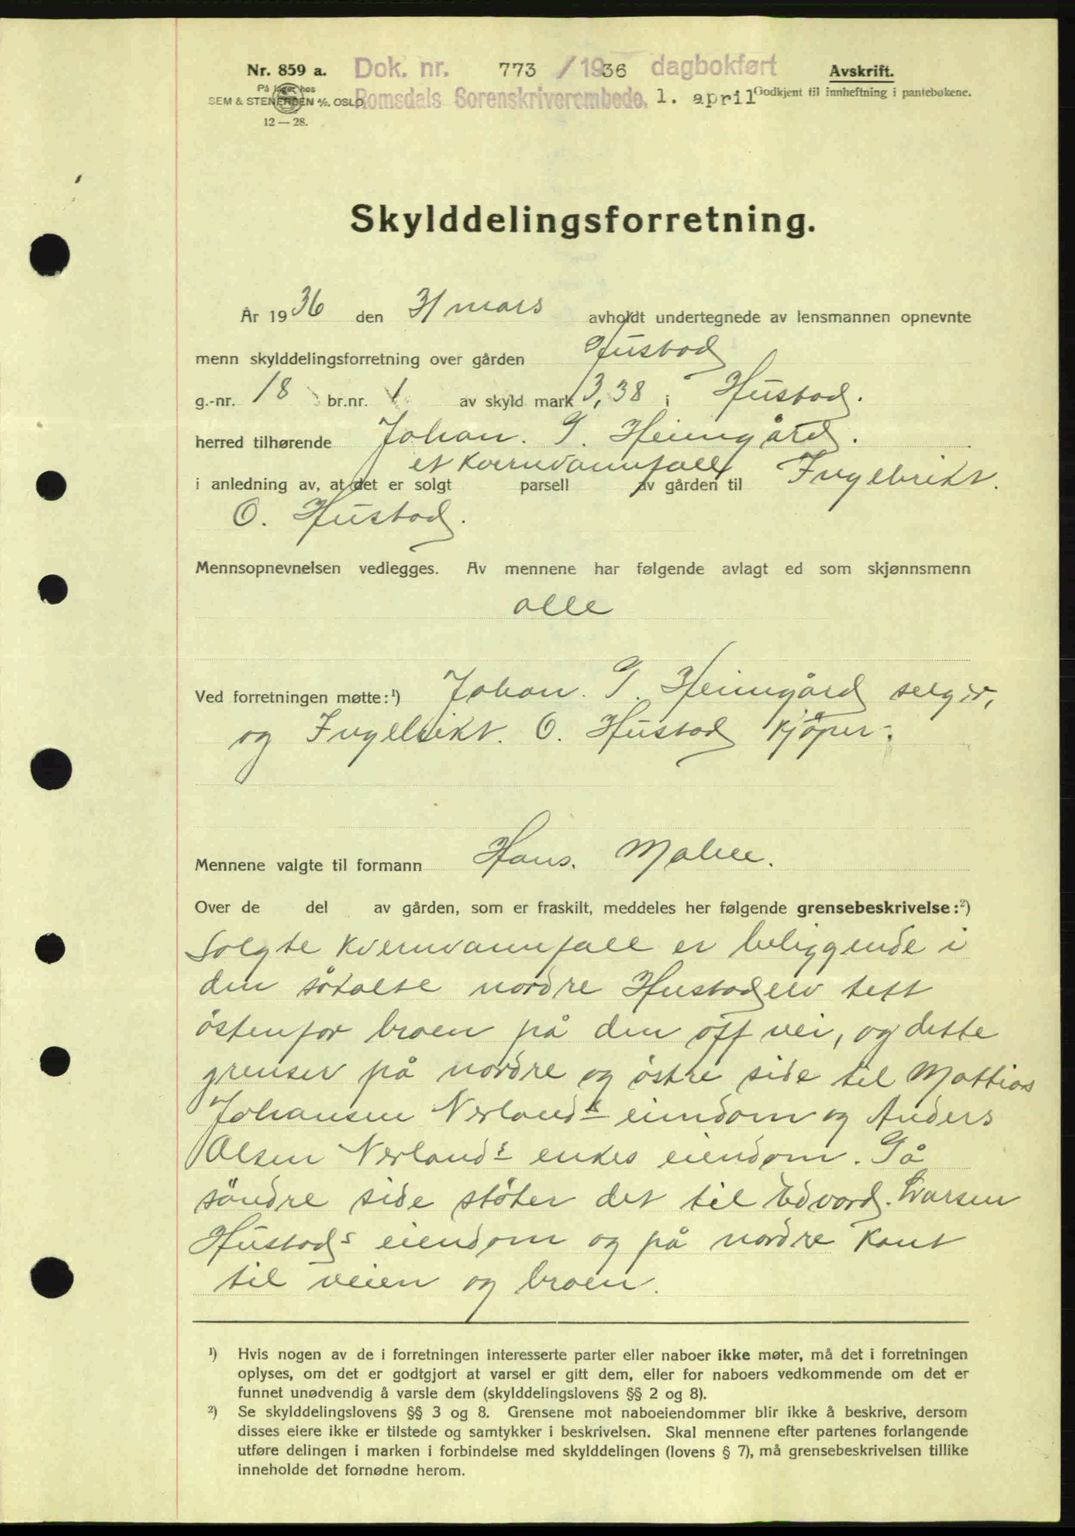 Nr. 859 a. Dok. nr. 773 / 1936 dagbokført Avskrift.
På lager hos
SEM & STENERSEN A/S, OSLO. Romsdals Sorenskriverembede, 1. april Godkjent til innheftning i pantebøkene.
12 — 28.
Skylddelingsforretning.
År 1936 den 31 mars avholdt undertegnede av lensmannen opnevnte
menn skylddelingsforretning over gården Hustad
g.-nr. 18 br.nr. 1 av skyld mark 3,38 i Hustad.
herred tilhørende Johan. G. Heimgård.
et Kvernvannfall
i anledning av, at det er solgt parsell av gården til Ingebrikt.
O. Hustad.
Mennsopnevnelsen vedlegges. Av mennene har følgende avlagt ed som skjønnsmenn
alle
Ved forretningen møtte:¹) Johan. G. Heimgård selger,
og Ingebrikt. O. Hustad kjøper.
Mennene valgte til formann Hans. Malme.
Over de del av gården, som er fraskilt, meddeles her følgende grensebeskrivelse:²)
Solgte Kvernvannfall er beliggende i
den såkalte nordre Hustadelv tett
östenfor broen på den off vei, og dette
grenser på nordre og östre side til Mattias
Johansen Nerlands eiendom og Anders
Olsen Nerlands enkes eiendom. På
söndre side stöter det til Edvard. Larsen
Hustads eiendom og på nordre Kant
til veien og broen.
¹) Hvis nogen av de i forretningen interesserte parter eller naboer ikke møter, må det i forretningen
oplyses, om det er godtgjort at varsel er gitt dem, eller for naboers vedkommende om det er
funnet unødvendig å varsle dem (skylddelingslovens §§ 2 og 8).
²) Se skylddelingslovens §§ 3 og 8. Grensene mot naboeiendommer blir ikke å beskrive, dersom
disses eiere ikke er tilstede og samtykker i beskrivelsen. Skal mennene efter partenes forlangende
utføre delingen i marken i forbindelse med skylddelingen (lovens § 7), må grensebeskrivelsen tillike
inneholde det fornødne herom.